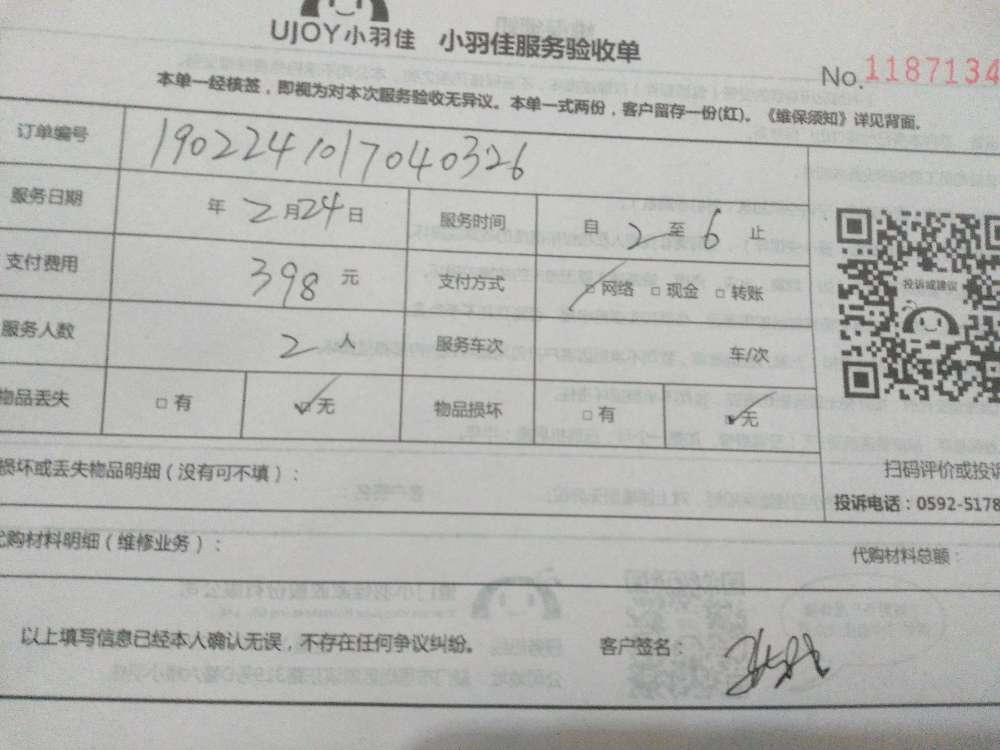 UJOY小羽佳 小羽佳服务验收单
No. 1187134
本单一经核签，即视为对本次服务验收无异议。本单一式两份，客户留存一份(红)。《维保须知》详见背面。
订单编号 190224101704032​6
服务日期 年 2月24日 服务时间 自 2 至 6 止
支付费用 398 元 支付方式 □网络 □现金 □转账
投诉或建议
服务人数 2 人 服务车次 车/次
物品丢失 □有 ☑无 物品损坏 □有 ☑无
损坏或丢失物品明细（没有可不填）：
扫码评价或投诉
投诉电话：0592-5178
代购材料明细（维修业务）： 代购材料总额：
以上填写信息已经本人确认无误，不存在任何争议纠纷。 客户签名：